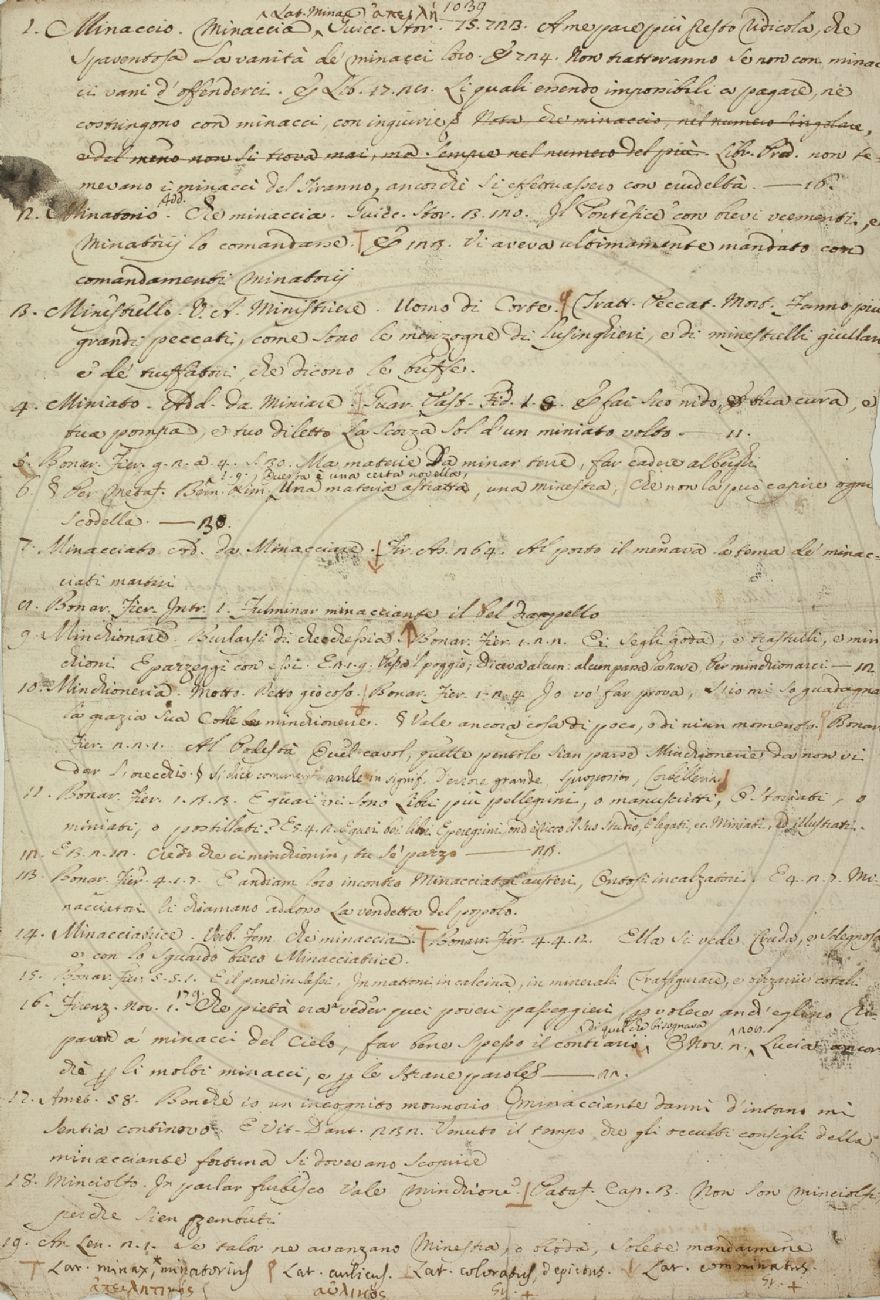 1039
Lat. Minae ἀπειλή
1. Minaccio. Minaccia. Guicc. Stor. 15. 723. A me pare più presto ridicola, che
spaventosa la vanità de' minacci loro. E 724. Non tratteranno se non con minac
ci vani d'offenderci. E Lib. 17. Li quali essendo impossibili a pagare, ne
costringono con minacci, con ingiurie. Nota che minaccio, nel numero singolare,
e del meno non si trova mai, ma sempre nel numero del più. Libr. Pred. non te
mevano i minacci del Tiranno, ancorchè si effettuassero con crudeltà. — 16.
2. Minatorio. Add. Che minaccia. Guicc. Stor. Il Pontefice con brevi veementi, e
Minatorij lo comandasse. E Vi aveva ultimamente mandato con
comandamenti minatorij
3. Ministrello. V. A. Ministriere. Uomo di Corte. Tratt. Peccat. Mort. Fanno più
grandi peccati, come sono le menzogne di lusinghieri, e di minestrelli giullari
e de' truffatori, che dicono le buffe.
4. Miniato. Add. da Miniare. Guar. Past. Fid. 1. 5. E fai suo nido, e tua cura, e
tua pompa, e tuo diletto La scorza sol d'un miniato volto — 11.
5. Bonar. Fier. Ma materie Da minar terre, far cadere alberghi
1. 9. Questa è una certa novella,
6. § Per Metaf. Bern. Rim. Una materia astratta, una minestra, Che non la può capire ogni
scodella. — 30.
7. Minacciato Add. da Minacciare. Fr. Al porto il menava la tema de' minac-
ciati martiri
8. Bonar. Fier. Intr. 1. Fulminar minacciante il bel drappello
9. Minchionare. Burlarsi di checchessia. Bonar. Fier. Ei segli goda, e trastulli, e min
chioni E pazzeggi con essi.
10. Minchioneria. Motto. Detto giocoso. Bonar. Fier. Io vo' far prova, S'io mi so guadagnar
la grazia sua Colle minchionerie. § Vale ancora cosa di poco, o di niun momento. Bonar.
Fier. Al Potestà Quei cavol, quelle pentole sian parse Minchionerie da non vi
dar l'orecchio. § Si dice comunem. anche in signif. D'errore grande, sproposito,
11. Bonar. Fier. E quai vi sono libri più pellegrini, o manuscritti, o
miniati, o postillati? E quei bei libri E peregrini, Legati, e Miniati, ed illustrati.
12. Credi che ci minchionin, tu se' pazzo —
13. Bonar. Fier. 4. 1. 7. E andiam loro incontro Minacciatori austeri, incalzatori. E 4. 2. 7. Mi-
nacciatori li chiamano addosso La vendetta del popolo.
14. Minacciatrice. Verb. Fem. che minaccia. Bonar. Fier. 4. 4. 2. Ella si vede Cruda, e sdegnosa
e con lo sguardo bieco Minacciatrice.
15. Bonar. Fier. 5. 5. 1. E il pane in sassi, In mattoni, in calcina, in minerali Trasfigurare, e bizzarrie cotali
16. Firenz. Nov. 1. 179. Che pietà era veder quei poveri passeggieri, volere anch'eglino
a' minacci del Cielo, far bene spesso il contrario di quel che bisognava. E Nov. Lucia ancor
chè li molti minacci, e le strane parole —
17. Amet. 58. Benchè io un incognito mormorio minacciante danni d'intorno mi
sentia continovo. E Vit. Dant. Venuto il tempo che gli occulti consigli della
minacciante fortuna si dovevano scoprire
18. Minciolto. In parlar furbesco vale Minchione. Pataff. Cap. Non son minciolti,
perchè sien
19. Se talor ne avanzano Minestra, o broda, solete mandarmene
Lat. minax, minatorius Lat. aulicus. Lat. coloratus, depictus. Lat. comminatus.
ἀπειλητικός αὐλικός Gr. + Gr. +